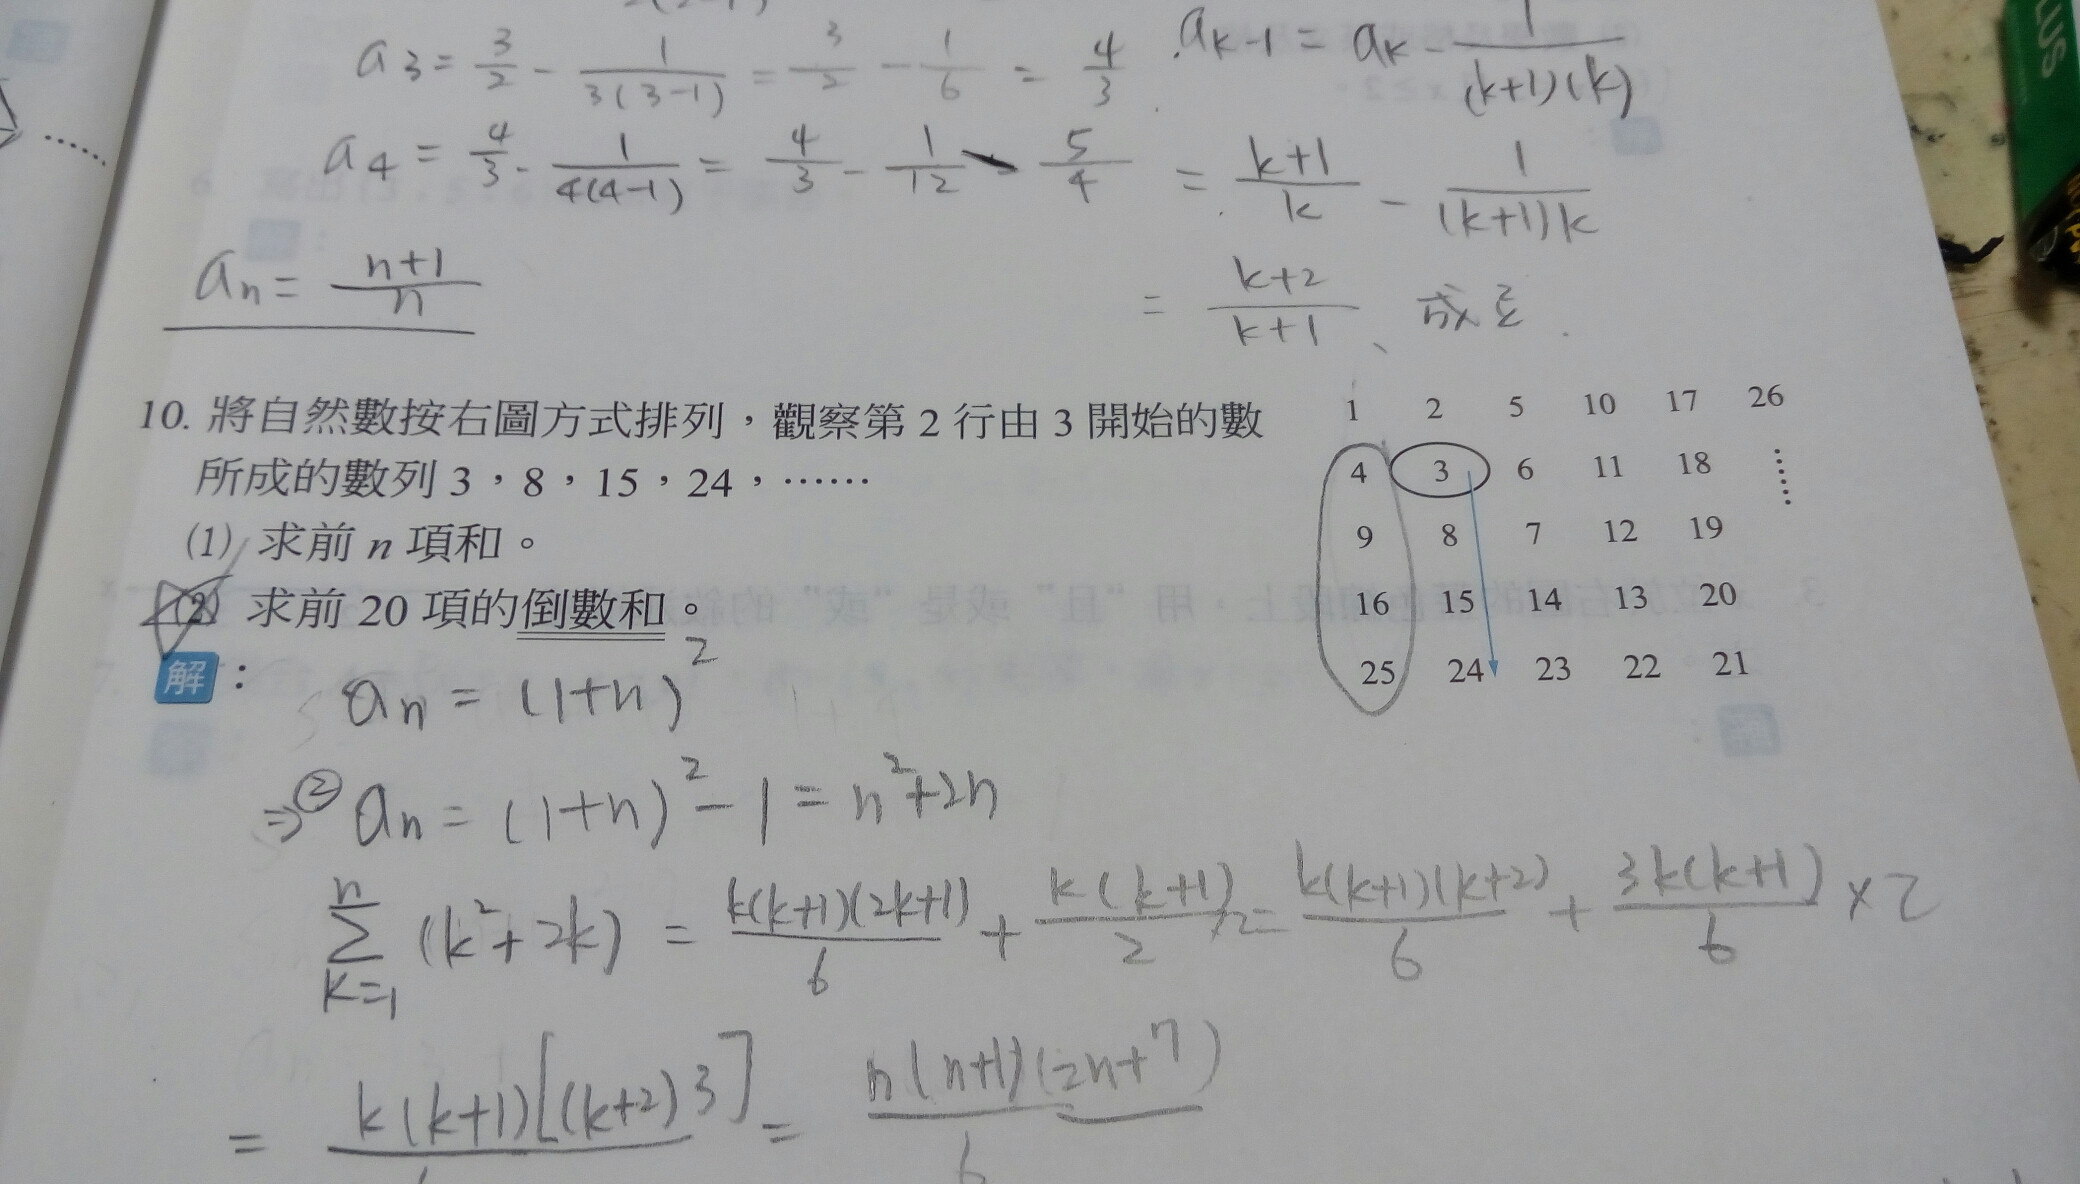 a3 = 3/2 - 1/3(3-1) = 3/2 - 1/6 = 4/3
a4 = 4/3 - 1/4(4-1) = 4/3 - 1/12 = 5/4
an = n+1/n
ak-1 = ak - 1/(k+1)(k)
= k+1/k - 1/(k+1)k
= k+2/k+1、成立.
10. 將自然數按右圖方式排列，觀察第 2 行由 3 開始的數
所成的數列 3，8，15，24，……
(1) 求前 n 項和。
(2) 求前 20 項的倒數和。
1 2 5 10 17 26
4 3 6 11 18
9 8 7 12 19
16 15 14 13 20
25 24 23 22 21
解：
an = (1+n)²
⇒② an = (1+n)² - 1 = n² + 2n
n Σ k=1 (k² + 2k) = k(k+1)(2k+1)/6 + k(k+1)/2 ×2 = k(k+1)(k+2)/6 + 3k(k+1)/6 ×2
= k(k+1)[(k+2)3] = n(n+1)(2n+7)/6
LUS